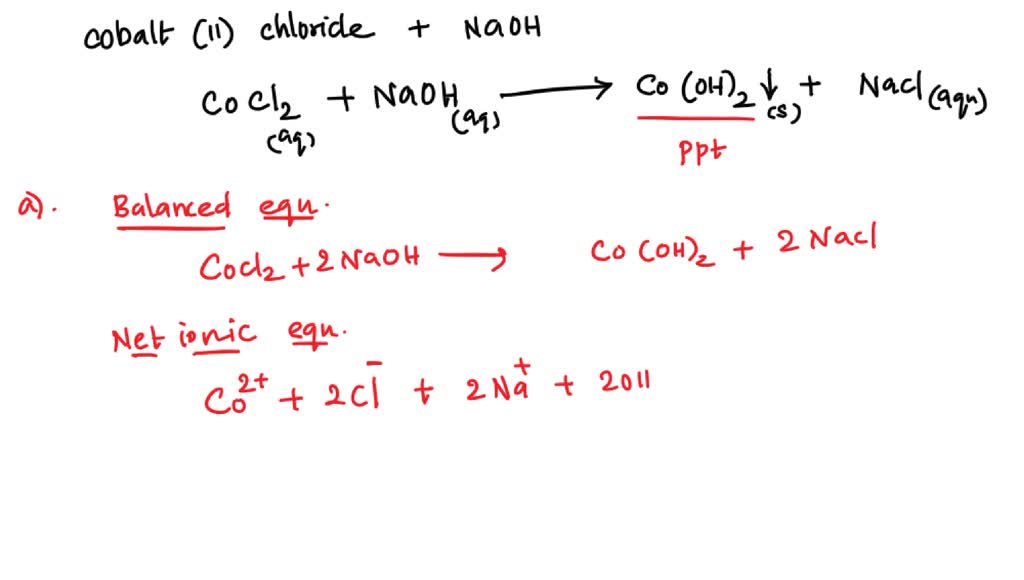 cobalt (II) chloride + NaOH
CoCl2 (aq) + NaOH (aq) → Co(OH)2 ↓ (s) + NaCl (aqn)
ppt
a). Balanced eqn.
CoCl2 + 2 NaOH → Co(OH)2 + 2 NaCl
Net ionic eqn.
Co2+ + 2Cl- + 2Na+ + 2Oll